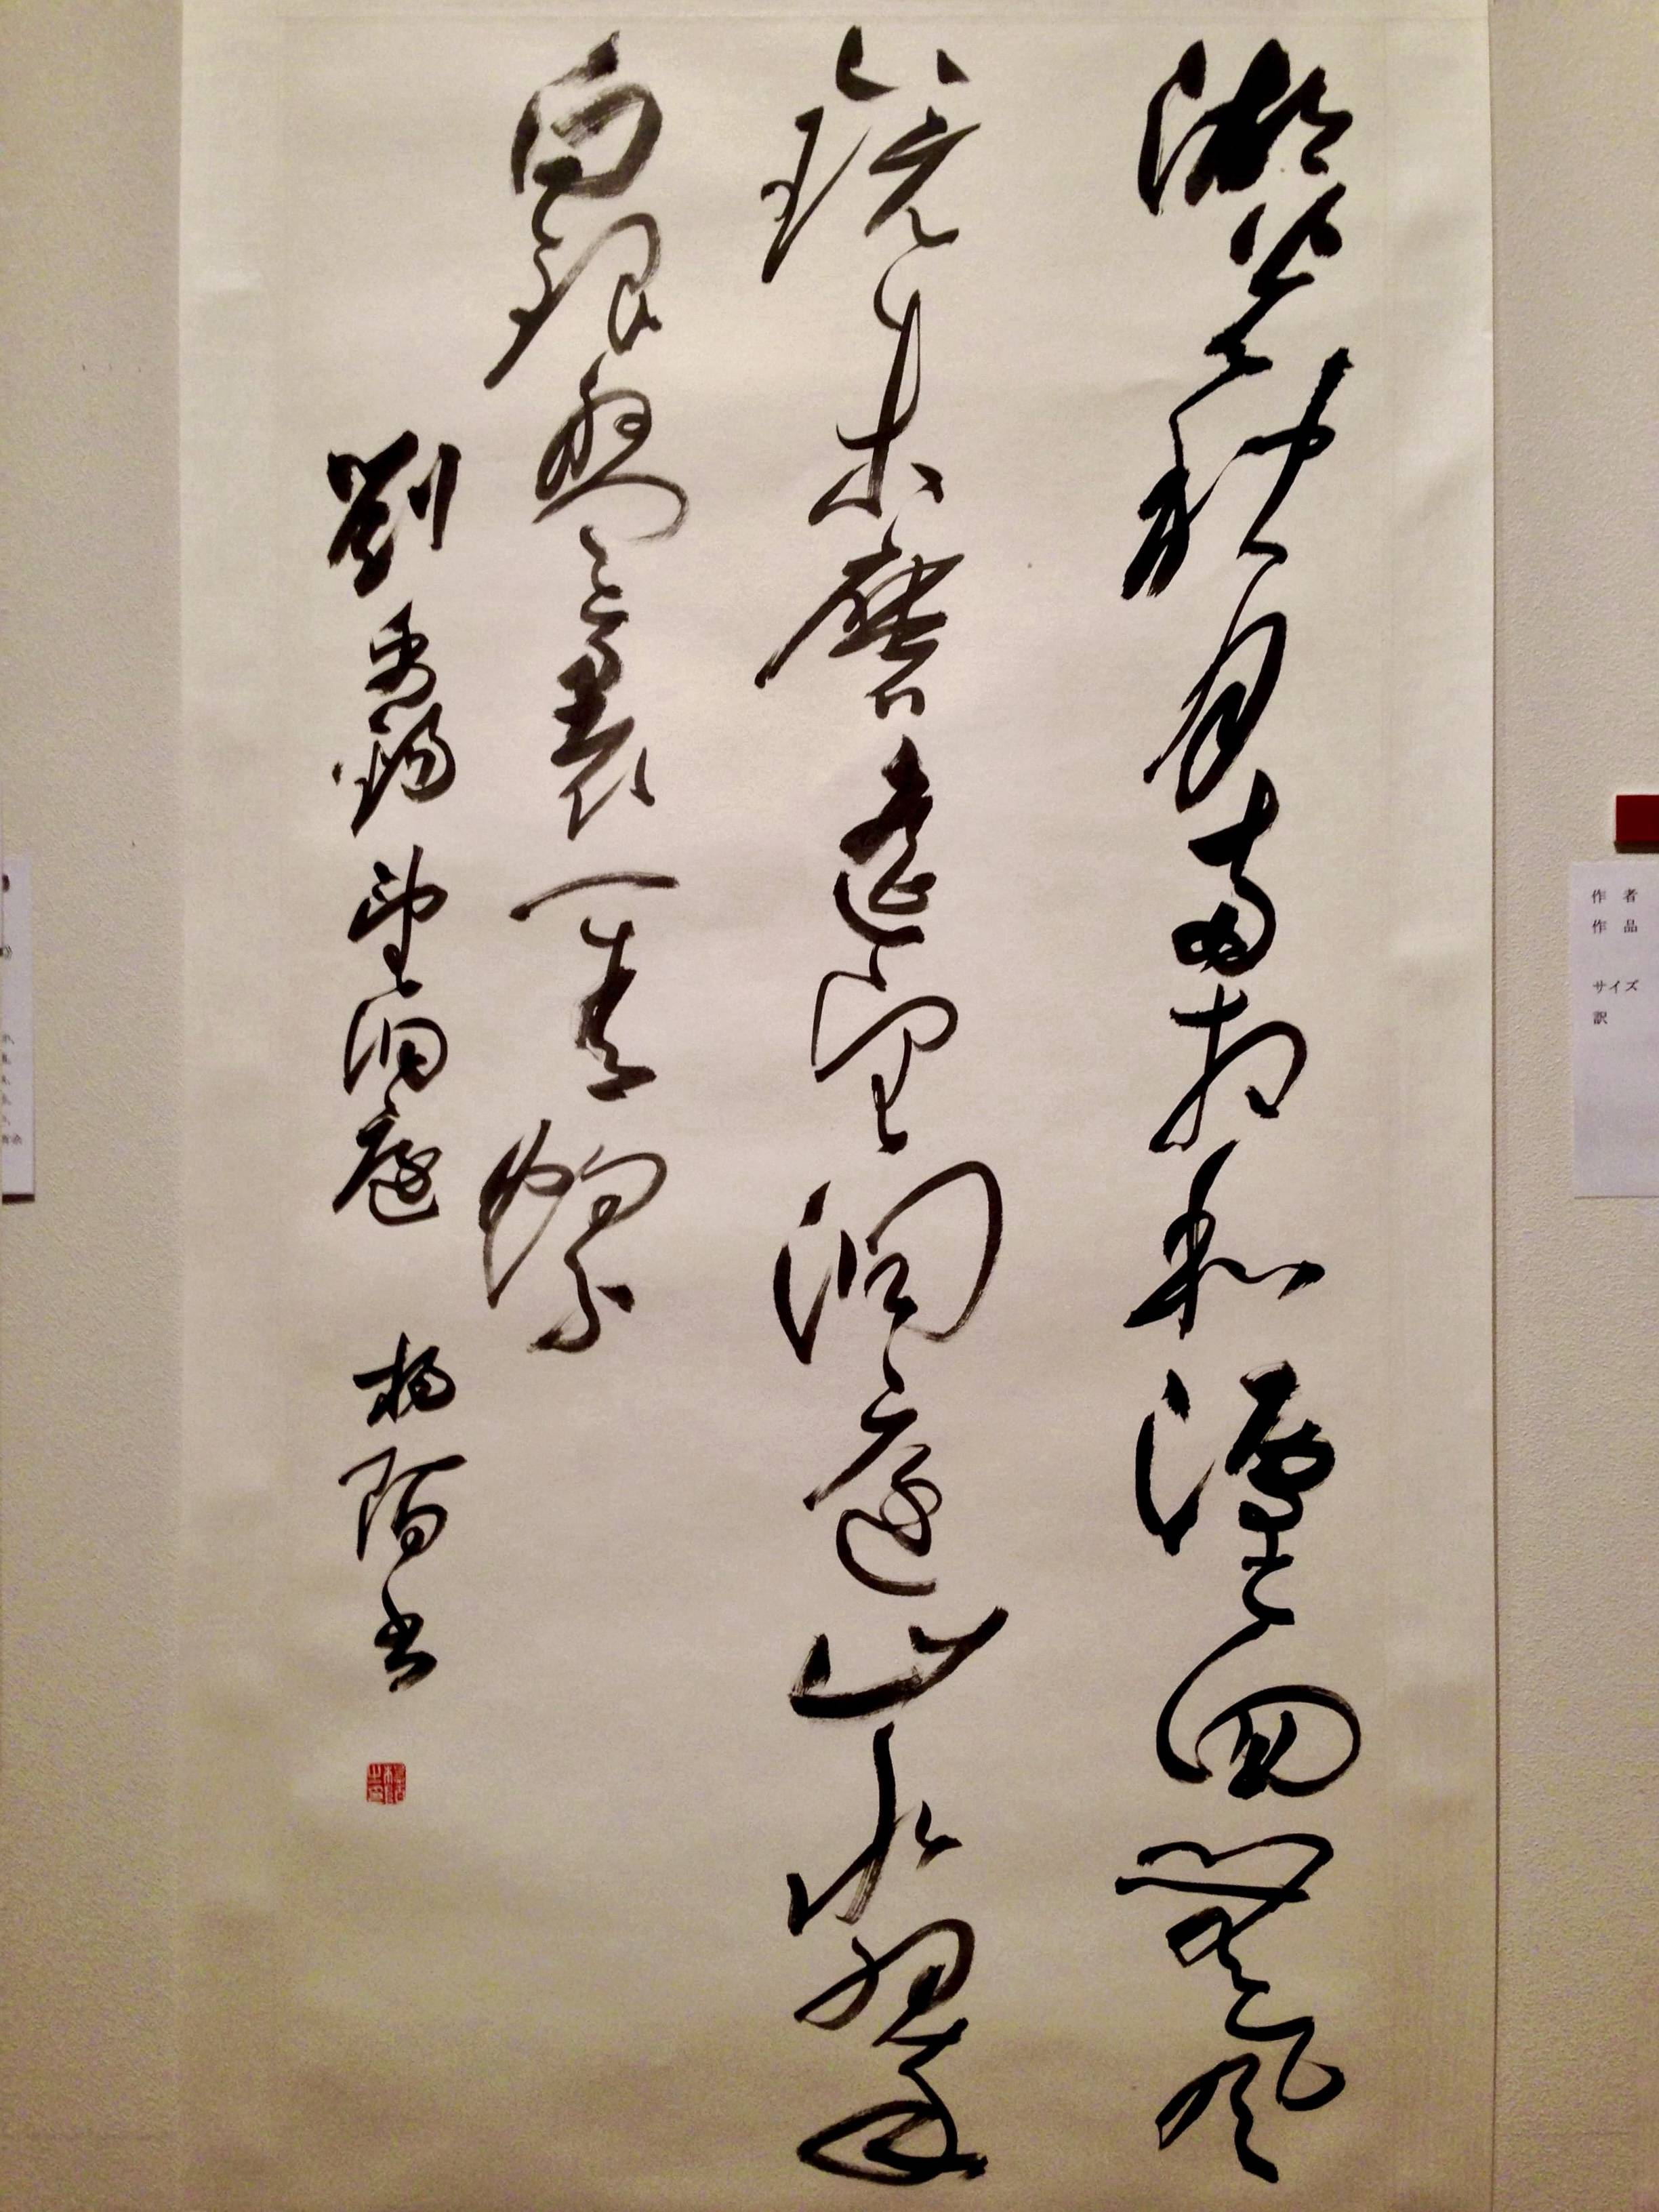 湖光秋月兩相和潭面無風
鏡未磨遙望洞庭山水翠
白銀盤裏一青螺
劉禹錫望洞庭 楊陌书
作者
作品
サイズ
訳